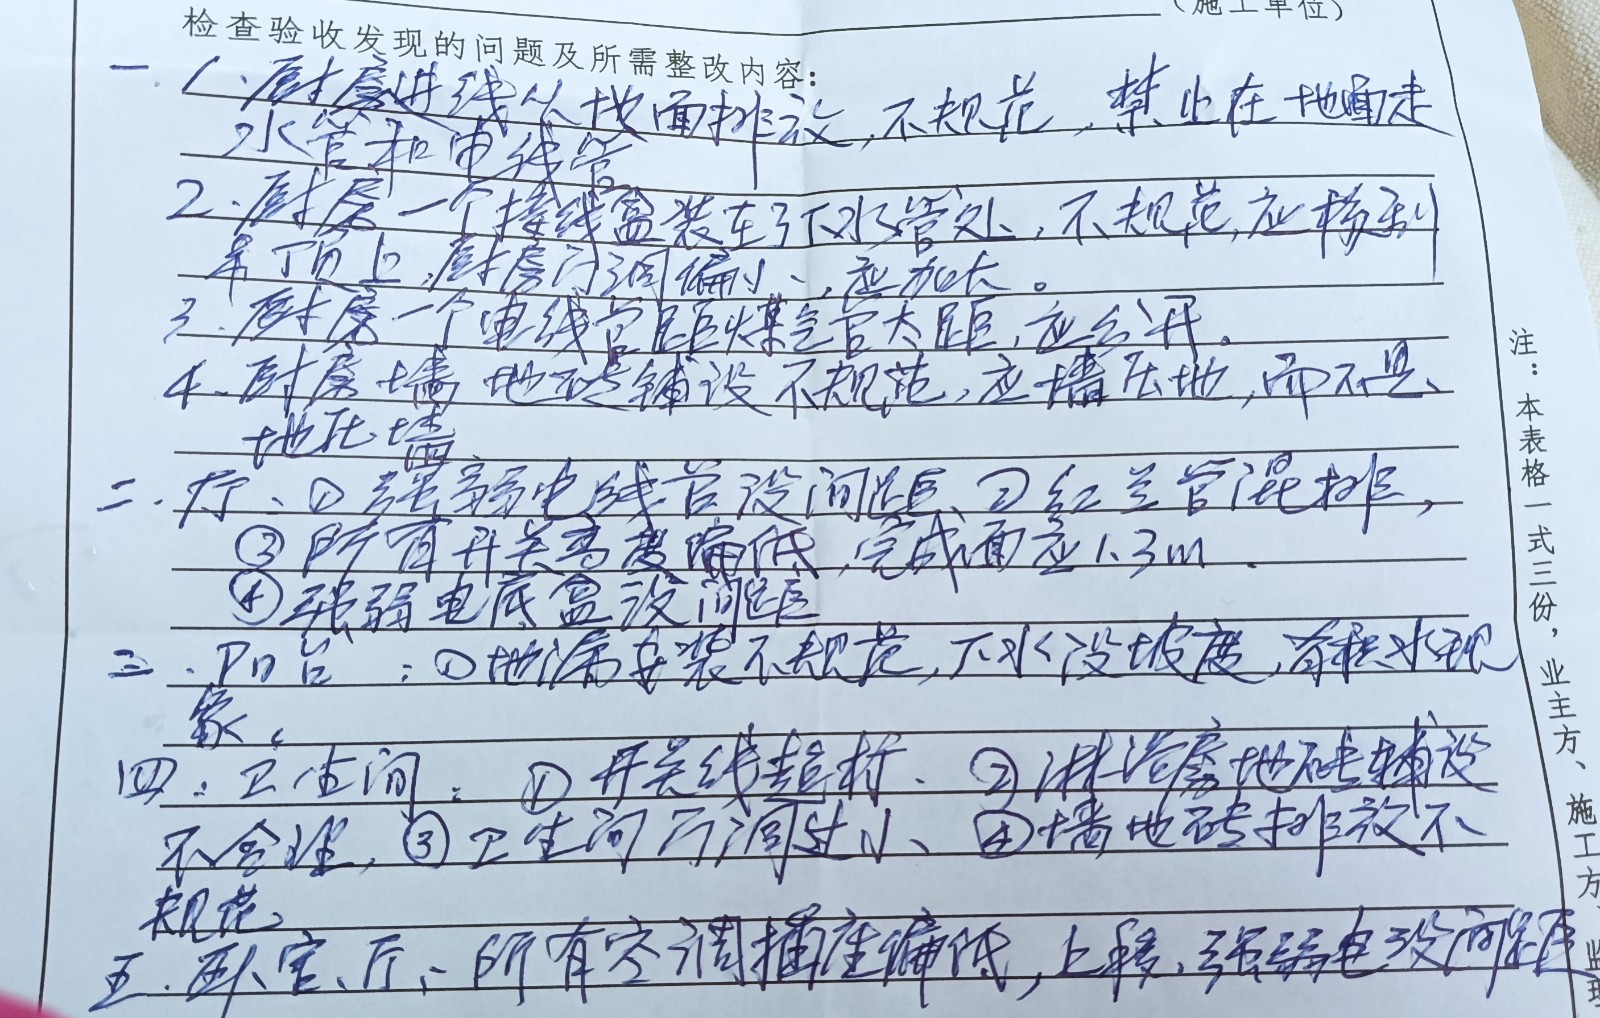 (施工单位)
检查验收发现的问题及所需整改内容:
一 1.厨房进线从地面排放,不规范,禁止在地面走
水管和电线管
2.厨房一个接线盒装在引下水管处,不规范,应移到
吊顶上,厨房门洞偏小,应加大。
3.厨房一个电线管距煤气管太距,应分开。
4.厨房墙地砖铺设不规范,应墙压地,而不是
地压墙
二.厅、①强弱电线管没间距、②红兰管混排,
③所有开关高度偏低,完成面应1.3m.
④强弱电底盒没间距
三.阳台:①地漏安装不规范,下水没坡度,有积水现
象。
四:卫生间:①开关线超标.②淋浴房地砖铺设
不合理,③卫生间门洞过小、④墙地砖排放不
规范
五.卧室、厅、所有空调插座偏低,上移、强弱电没间距
注:本表格一式三份,业主方、施工方、监理